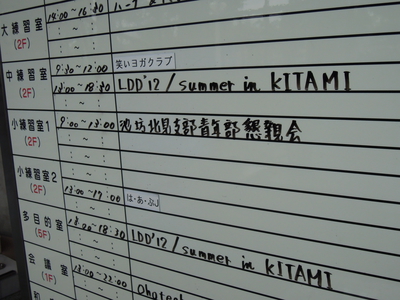 大練習室
(2F)
14:00~16:30
中練習室
(2F)
9:30~12:00 笑いヨガクラブ
13:00~18:30 LDD'12/summer in KITAMI
: ~ :
小練習室1
(2F)
9:00~13:00 池坊北見支部青年部懇親会
: ~ :
: ~ :
小練習室2
(2F)
: ~ :
: ~ :
13:00~17:00 は・あ・ぷ♩
多目的室
(5F)
13:00~18:30 LDD'12/summer in KITAMI
: ~ :
: ~ :
会議室
(1F)
18:00~22:00
: ~ :